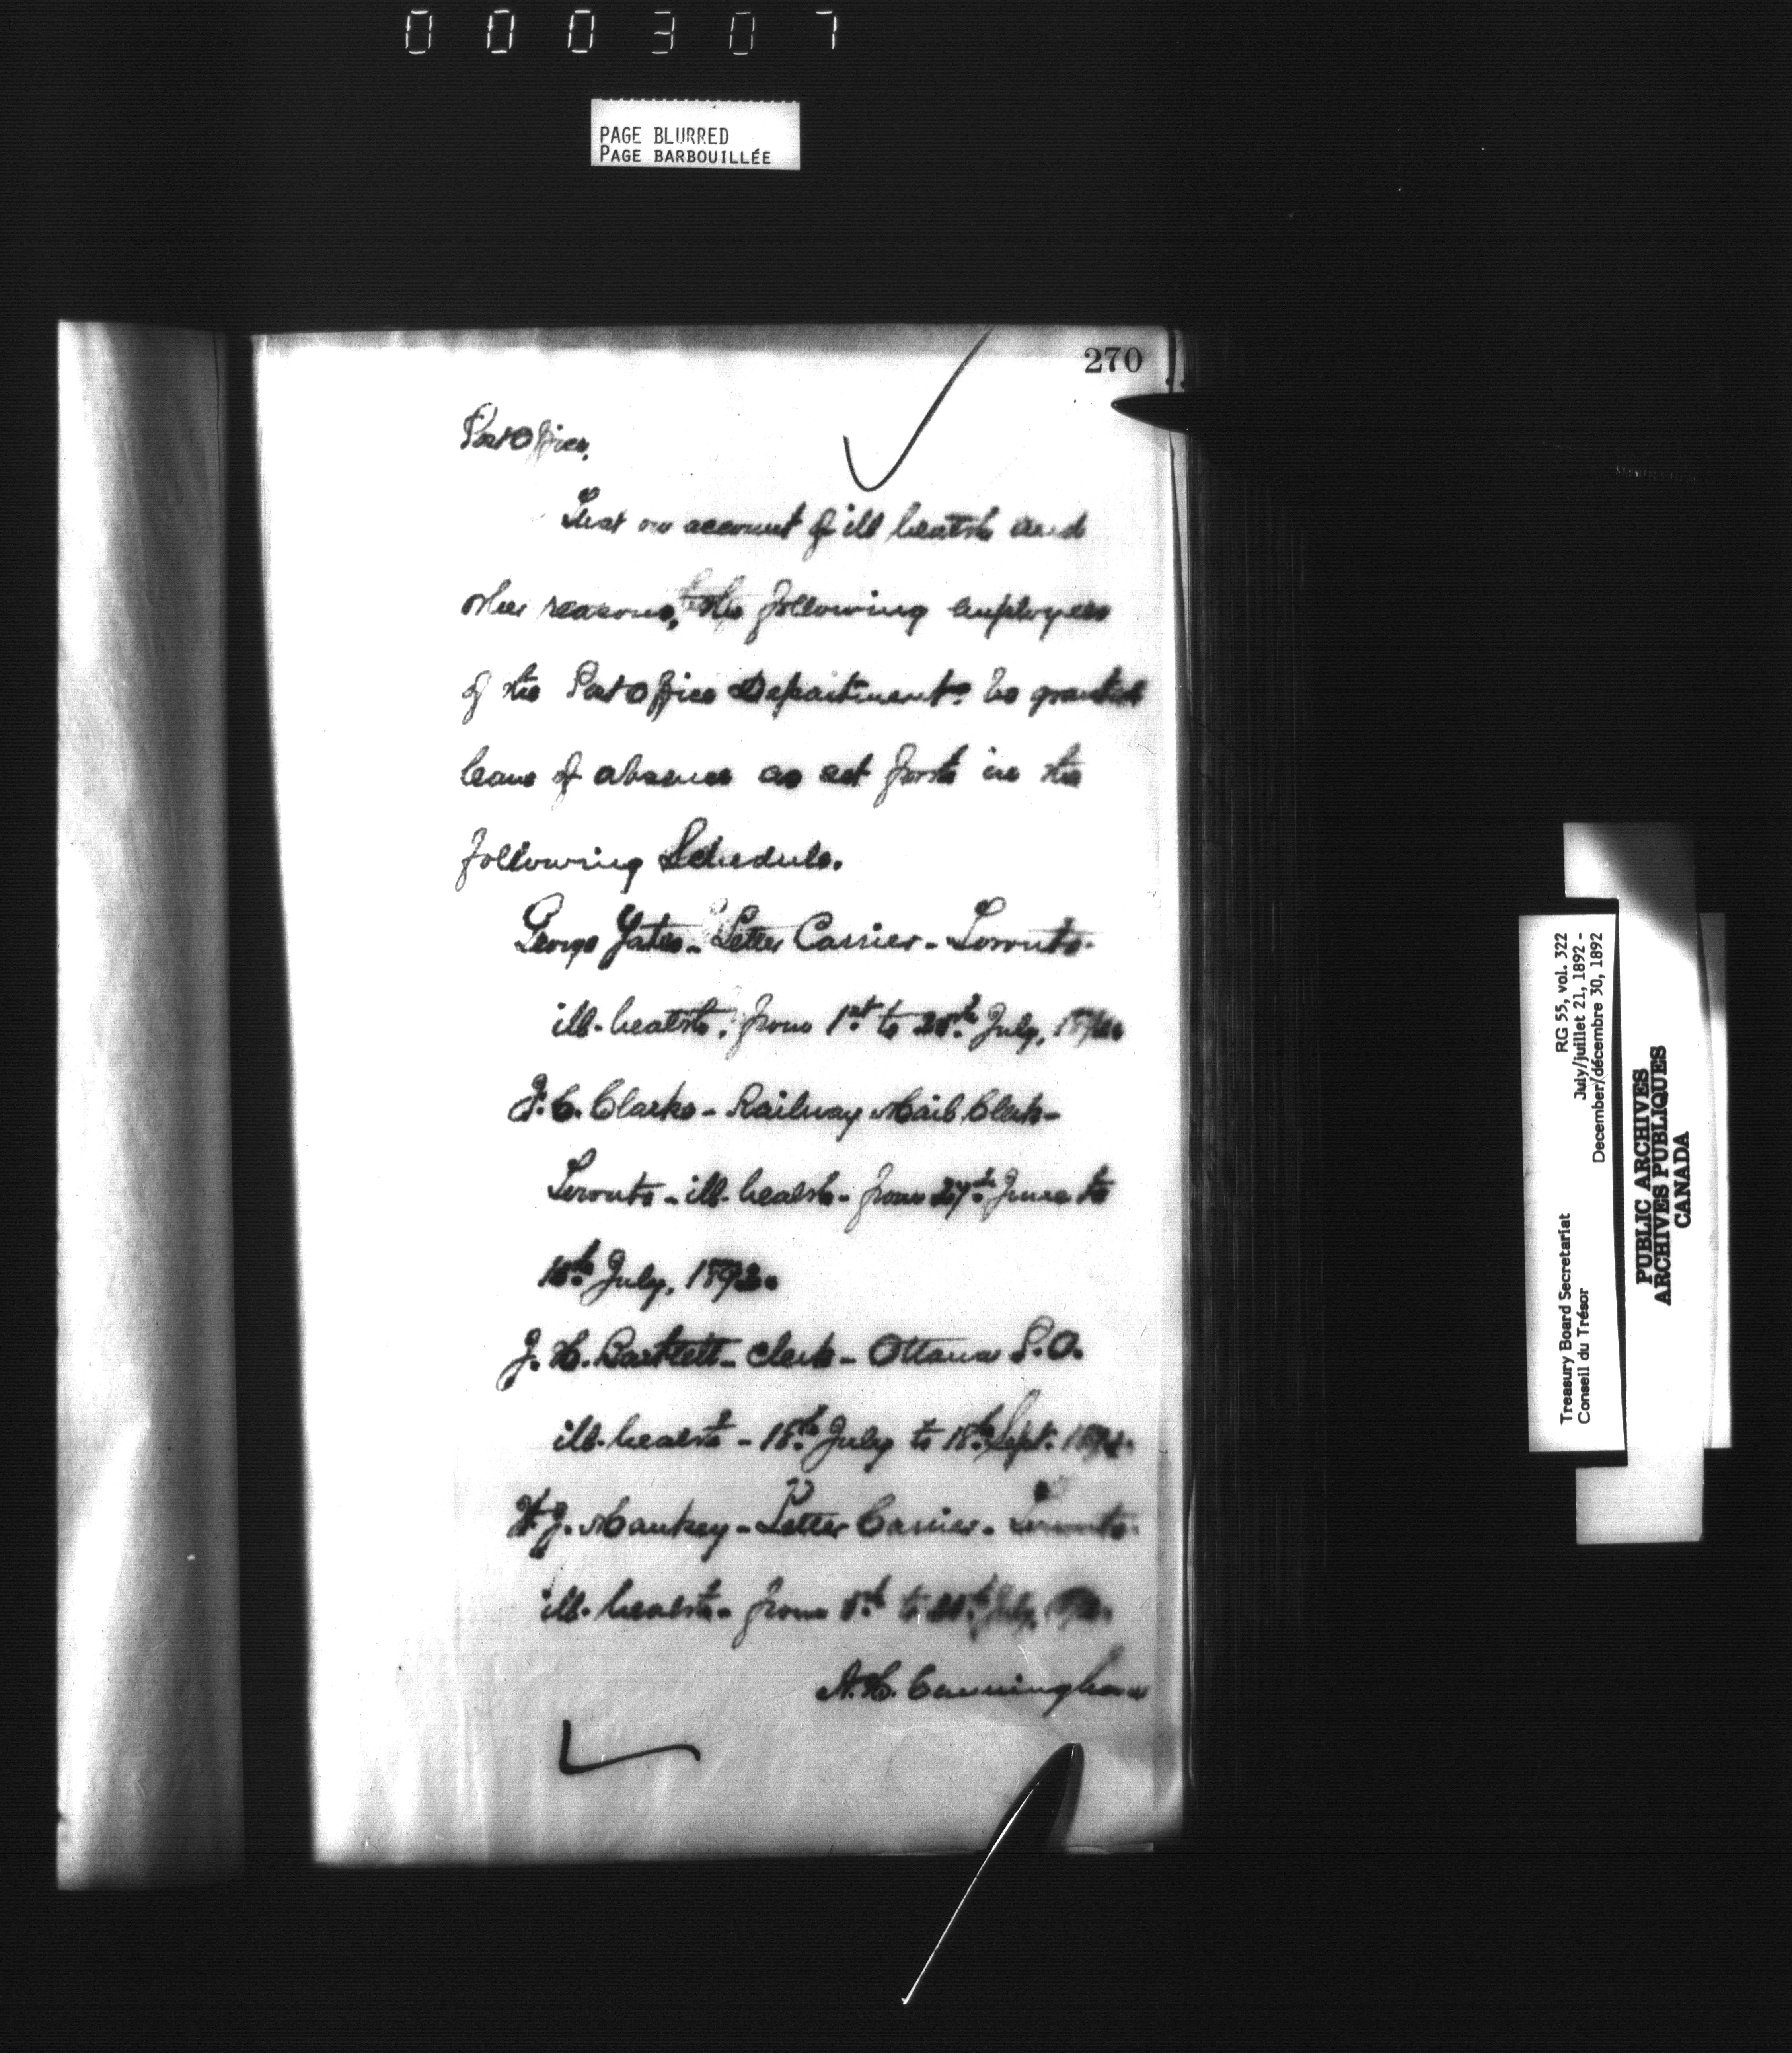 000307
PAGE BLURRED
PAGE BARBOUILLÉE
270
Post Office.
That on account of ill health and
other reasons, the following employees
of the Post Office Department be granted
leave of absence as set forth in the
following Schedule.
George Yates - Letter Carrier - Toronto.
ill-health, from 1st to July,
J. C. Clarke - Railway Mail Clerk -
Toronto - ill-health - from 27th June to
July, 1892.
J. H. Bartlett - Clerk - Ottawa P.O.
ill-health - 18th July to 18th Sept. 1892.
J. Mankey - Letter Carrier - Toronto.
ill-health - from to July,
A. H. Cunningham
RG 55, vol. 322
July/juillet 21, 1892 -
December/décembre 30, 1892
Treasury Board Secretariat
Conseil du Trésor
PUBLIC ARCHIVES
ARCHIVES PUBLIQUES
CANADA